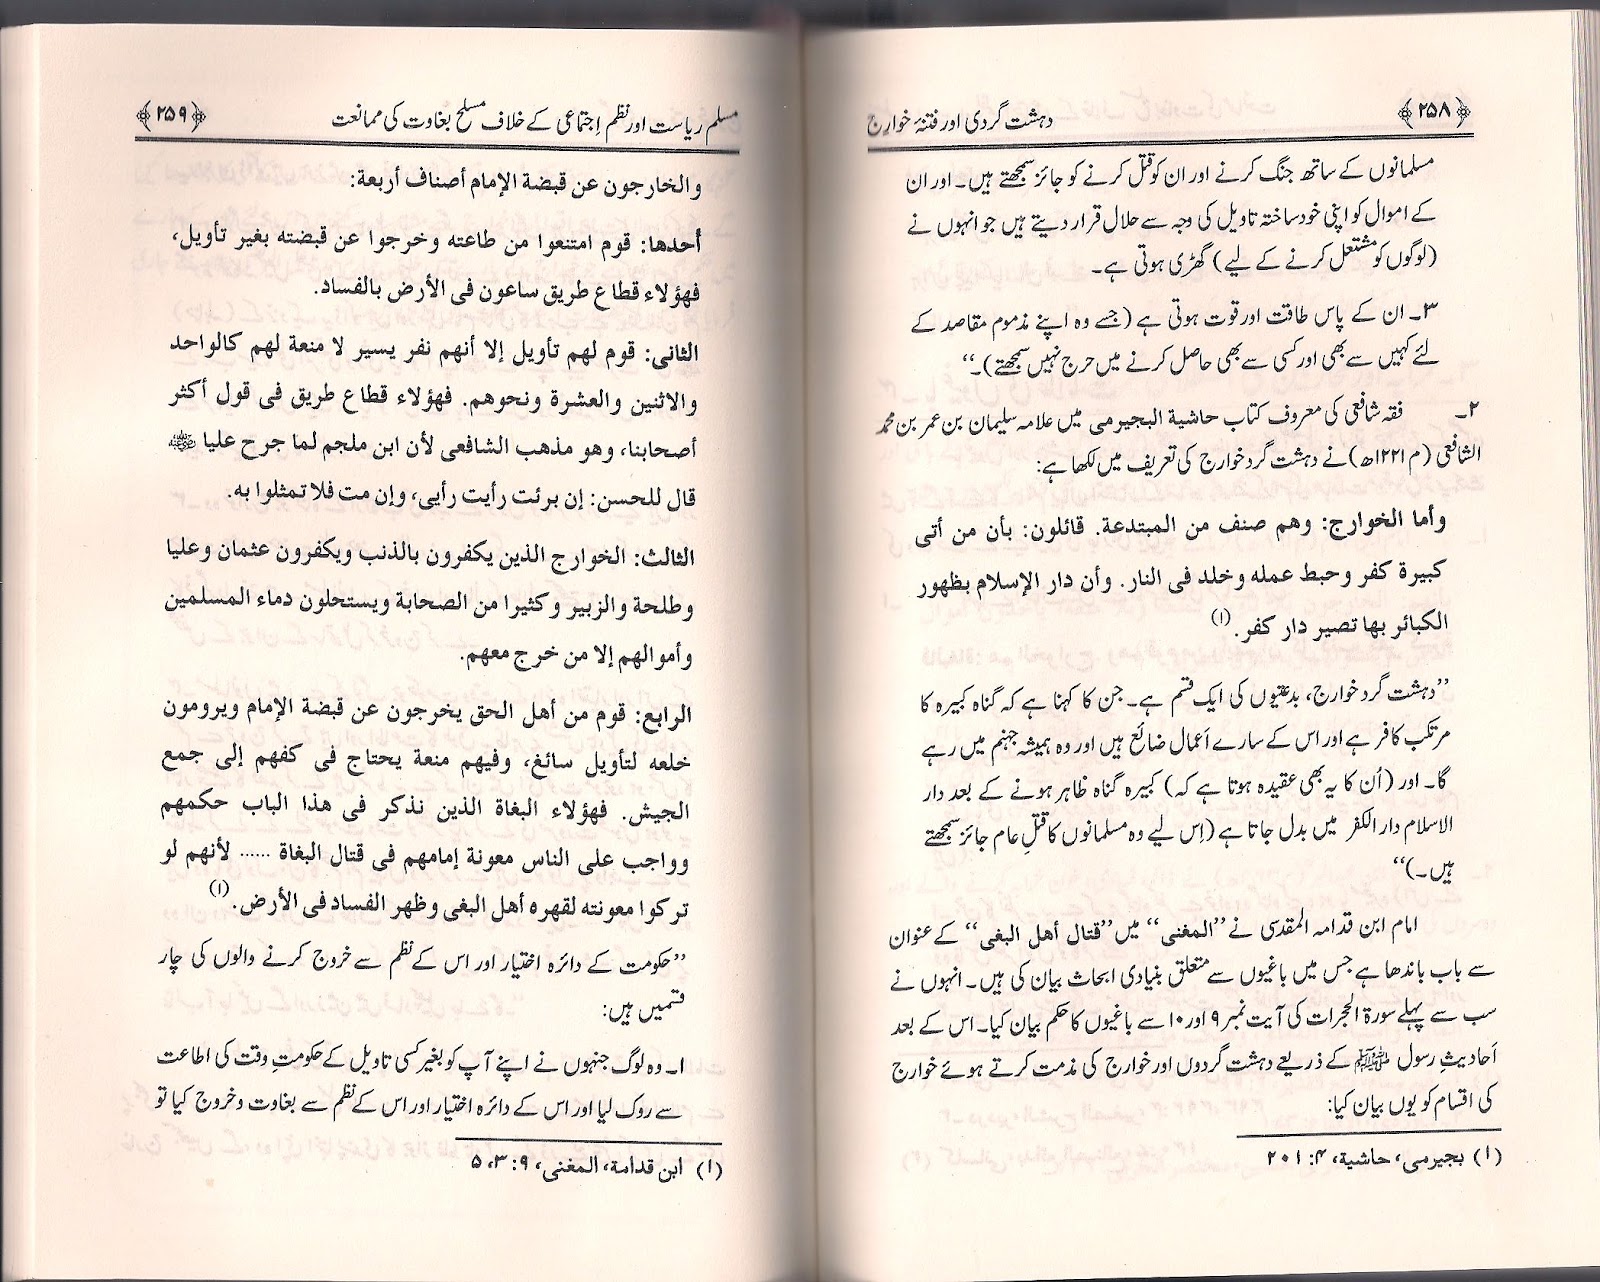 ﴿۲۵۸﴾ دہشت گردی اور فتنۂ خوارج
مسلمانوں کے ساتھ جنگ کرنے اور ان کو قتل کرنے کو جائز سمجھتے ہیں۔ اور ان
کے اموال کو اپنی خود ساختہ تاویل کی وجہ سے حلال قرار دیتے ہیں جو انہوں نے
(لوگوں کو مشتعل کرنے کے لیے) گھڑی ہوتی ہے۔
۳۔ ان کے پاس طاقت اور قوت ہوتی ہے (جسے وہ اپنے مذموم مقاصد کے
لئے کہیں سے بھی اور کسی سے بھی حاصل کرنے میں حرج نہیں سمجھتے)۔‘‘
۲۔ فقہ شافعی کی معروف کتاب حاشیة البجیرمی میں علامہ سلیمان بن عمر بن محمد
الشافعی (م ۱۲۲۱ھ) نے دہشت گرد خوارج کی تعریف میں لکھا ہے:
وأما الخوارج: وهم صنف من المبتدعة. قائلون: بأن من أتى
كبيرة كفر وحبط عمله وخلد فى النار. وأن دار الإسلام بظهور
الكبائر بها تصير دار كفر.(۱)
’’دہشت گرد خوارج، بدعتیوں کی ایک قسم ہے۔ جن کا کہنا ہے کہ گناہ کبیرہ کا
مرتکب کافر ہے اور اس کے سارے اَعمال ضائع ہیں اور وہ ہمیشہ جہنم میں رہے
گا۔ اور (اُن کا یہ بھی عقیدہ ہوتا ہے کہ) کبیرہ گناہ ظاہر ہونے کے بعد دار
الاسلام دار الکفر میں بدل جاتا ہے (اِس لیے وہ مسلمانوں کا قتلِ عام جائز سمجھتے
ہیں۔)‘‘
امام ابن قدامہ المقدسی نے ’’المغنی‘‘ میں ’’قتال أهل البغی‘‘ کے عنوان
سے باب باندھا ہے جس میں باغیوں سے متعلق بنیادی ابحاث بیان کی ہیں۔ انہوں نے
سب سے پہلے سورۃ الحجرات کی آیت نمبر ۹ اور ۱۰ سے باغیوں کا حکم بیان کیا۔ اس کے بعد
اَحادیثِ رسول ﷺ کے ذریعے دہشت گردوں اور خوارج کی مذمت کرتے ہوئے خوارج
کی اقسام کو یوں بیان کیا:
(۱) بجیرمی، حاشیة، ۴: ۲۰۱
مسلم ریاست اور نظم اِجتماعی کے خلاف مسلح بغاوت کی ممانعت ﴿۲۵۹﴾
والخارجون عن قبضة الإمام أصناف أربعة:
أحدها: قوم امتنعوا من طاعته وخرجوا عن قبضته بغير تأويل،
فهؤلاء قطاع طريق ساعون فى الأرض بالفساد.
الثانى: قوم لهم تأويل إلا أنهم نفر يسير لا منعة لهم كالواحد
والاثنين والعشرة ونحوهم. فهؤلاء قطاع طريق فى قول أكثر
أصحابنا، وهو مذهب الشافعى لأن ابن ملجم لما جرح عليا ﷺ
قال للحسن: إن برئت رأيت رأيى، وإن مت فلا تمثلوا به.
الثالث: الخوارج الذين يكفرون بالذنب ويكفرون عثمان وعليا
وطلحة والزبير وكثيرا من الصحابة ويستحلون دماء المسلمين
وأموالهم إلا من خرج معهم.
الرابع: قوم من أهل الحق يخرجون عن قبضة الإمام ويرومون
خلعه لتأويل سائغ، وفيهم منعة يحتاج فى كفهم إلى جمع
الجيش. فهؤلاء البغاة الذين نذكر فى هذا الباب حكمهم
وواجب على الناس معونة إمامهم فى قتال البغاة ...... لأنهم لو
تركوا معونته لقهره أهل البغى وظهر الفساد فى الأرض.(۱)
’’حکومت کے دائرہ اختیار اور اس کے نظم سے خروج کرنے والوں کی چار
قسمیں ہیں:
۱۔ وہ لوگ جنہوں نے اپنے آپ کو بغیر کسی تاویل کے حکومتِ وقت کی اطاعت
سے روک لیا اور اس کے دائرہ اختیار اور اس کے نظم سے بغاوت و خروج کیا تو
(۱) ابن قدامة، المغنی، ۹: ۳، ۵